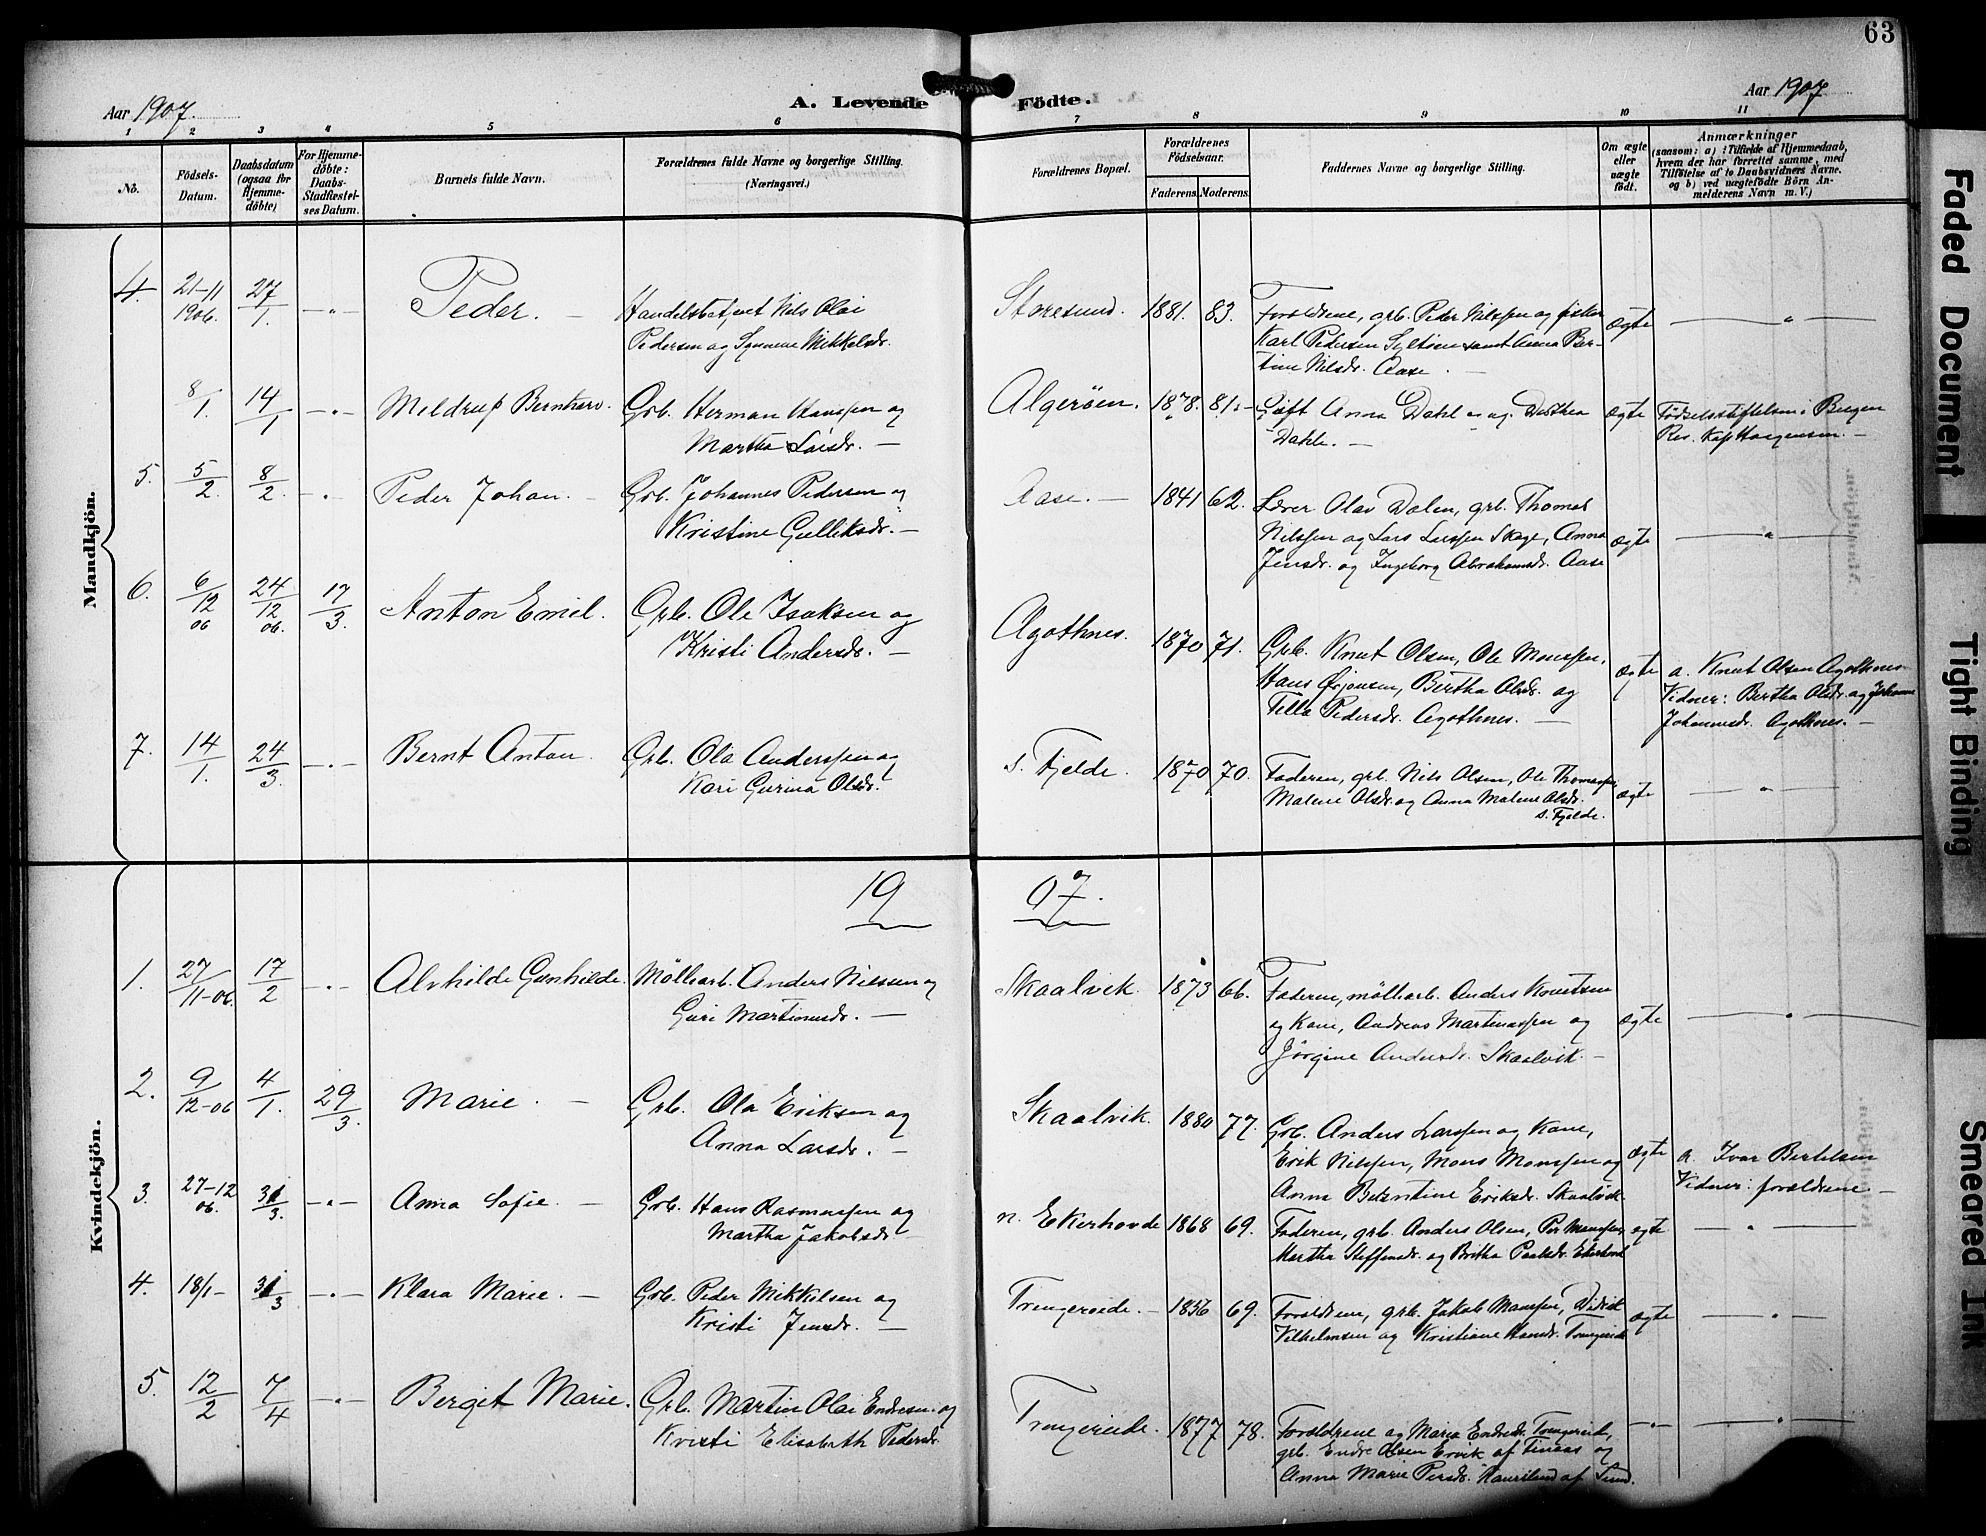 63
Aar 1907.
A. Levende Födte.
Aar 1907
1 2 3 4 5 6 7 8 9 10 11
No.
Födsels-Datum.
Daabsdatum (ogsaa for Hjemme-döbte)
For Hjemme-döbte: Daabs-Stadfæstel-ses Datum.
Barnets fulde Navn.
Forældrenes fulde Navne og borgerlige Stilling.
(Næringsvei.)
Forældrenes Bopæl.
Forældrenes Födselsaar.
Faderens. Moderens.
Faddernes Navne og borgerlige Stilling.
Om ægte eller uægte födt.
Anmærkninger
(saasom: a) i Tilfælde af Hjemmedaab,
hvem der har forrettet samme, med
Tilföielse af to Daabsvidners Navne,
og b) ved uægtefödte Börn An-
melderens Navn m. V.)
Mandkjön.
4. 21-11 1906. 27/1. -"- Peder. — Handelsbetjent Nils Olai
Pedersen og Synneve Mikkelsdr.
Storesund. 1881. 83. Forældrene, grb. Peder Nilssen og fisker
Karl Pedersen Syltøen samt Anna Ber-
tine Nilsdr. Aase. —
ægte — " —
8/1. 14/1 -"- Meldrup Bernhard. Grb. Herman Hanssen og
Martha Larsdr. —
Algerøen. 1878. 81.- Gift Anna Dahl og Dorthea
Dahle. —
ægte Fødselsstiftelsen i Bergen
Res. Kap Haagensen. —
5. 5/2. 8/2. -"- Peder Johan. — Grb. Johannes Pedersen og
Kristine Gulleksdr. —
Aase. — 1841 62. Lærer Olav Dalen, grb. Thomas
Nilssen og Lars Larssen Skage, Anna
Jensdr. og Ingeborg Abrahamsdr. Aase
ægte — " —
6. 6/12 06 24/12 06. 17/3. Anton Emil. Grb. Ole Isaksen og
Kristi Andersdr. —
Agothnes. 1870 71. Grb. Knut Olsen, Ole Monssen,
Hans Ørjansen, Bertha Olsdr. og
Pedersdr. Agothnes. —
ægte a. Knut Olsen Agothnes
Vidner: Bertha Olsdr. og Johanne
Johannesdr. Agothnes. —
7. 14/1. 24/3. -"- Bernt Anton. Grb. Ola Anderssen og
Kari Gurina Olsdr.
s. Fjelde. 1870 70. Faderen, grb. Nils Olsen, Ole Thomassen,
Malene Olsdr. og Anna Malene Olsdr.
s. Fjelde.
ægte — " —
1907.
Kvindekjön.
1. 27/11-06. 17/2 -"- Alvhilde Gunhilde. Møllearb. Anders Nilssen og
Guri Martinusdr. —
Skaalvik. 1873 66. Faderen, møllearb. Anders Knutsen
og Kone, Andreas Martinussen og
Jørgine Andersdr. Skaalvik. —
ægte — " —
2. 9/12-06 4/1. 29/3. Marie. — Grb. Ola Eriksen og
Anna Larsdr. —
Skaalvik. 1880 77. Grb. Anders Larssen og Kone,
Erik Nilssen, Mons Monssen og
Anna Berentine Eriksdr. Skaalvik.
ægte a. Ivar Bertelsen
Vidner: forældrene —
3. 27-12 06. 31/3. -"- Anna Sofie. — Grb. Hans Rasmussen og
Martha Jakobsdr. —
n. Ekerhovde 1868 69. Faderen, grb. Anders Olsen, Per Monssen,
Martha Steffensdr. og Britha Ekerhovd
ægte — " —
4. 18/1- 31/3 -"- Klara Marie. — Grb. Peder Mikkelsen og
Kristi Jensdr. —
Trengereide. — 1856 69. Forældrene, grb. Jakob Monssen, Didrik
Vilhelmsen og Kristiane Hansdr. Trengereide
ægte — " —
5. 12/2 7/4 -"- Berget Marie. Grb. Martin Olai Endresen og
Kristi Elisabeth Pedersdr.
Trengereide. 1877 78. Forældrene og Maria Endresdr. Trengereid,
grb. Endre Olsen Ervik af og
Anna Marie Persdr. af Sund.
-"- — " —
Faded Document
Tight Binding
Smeared Ink